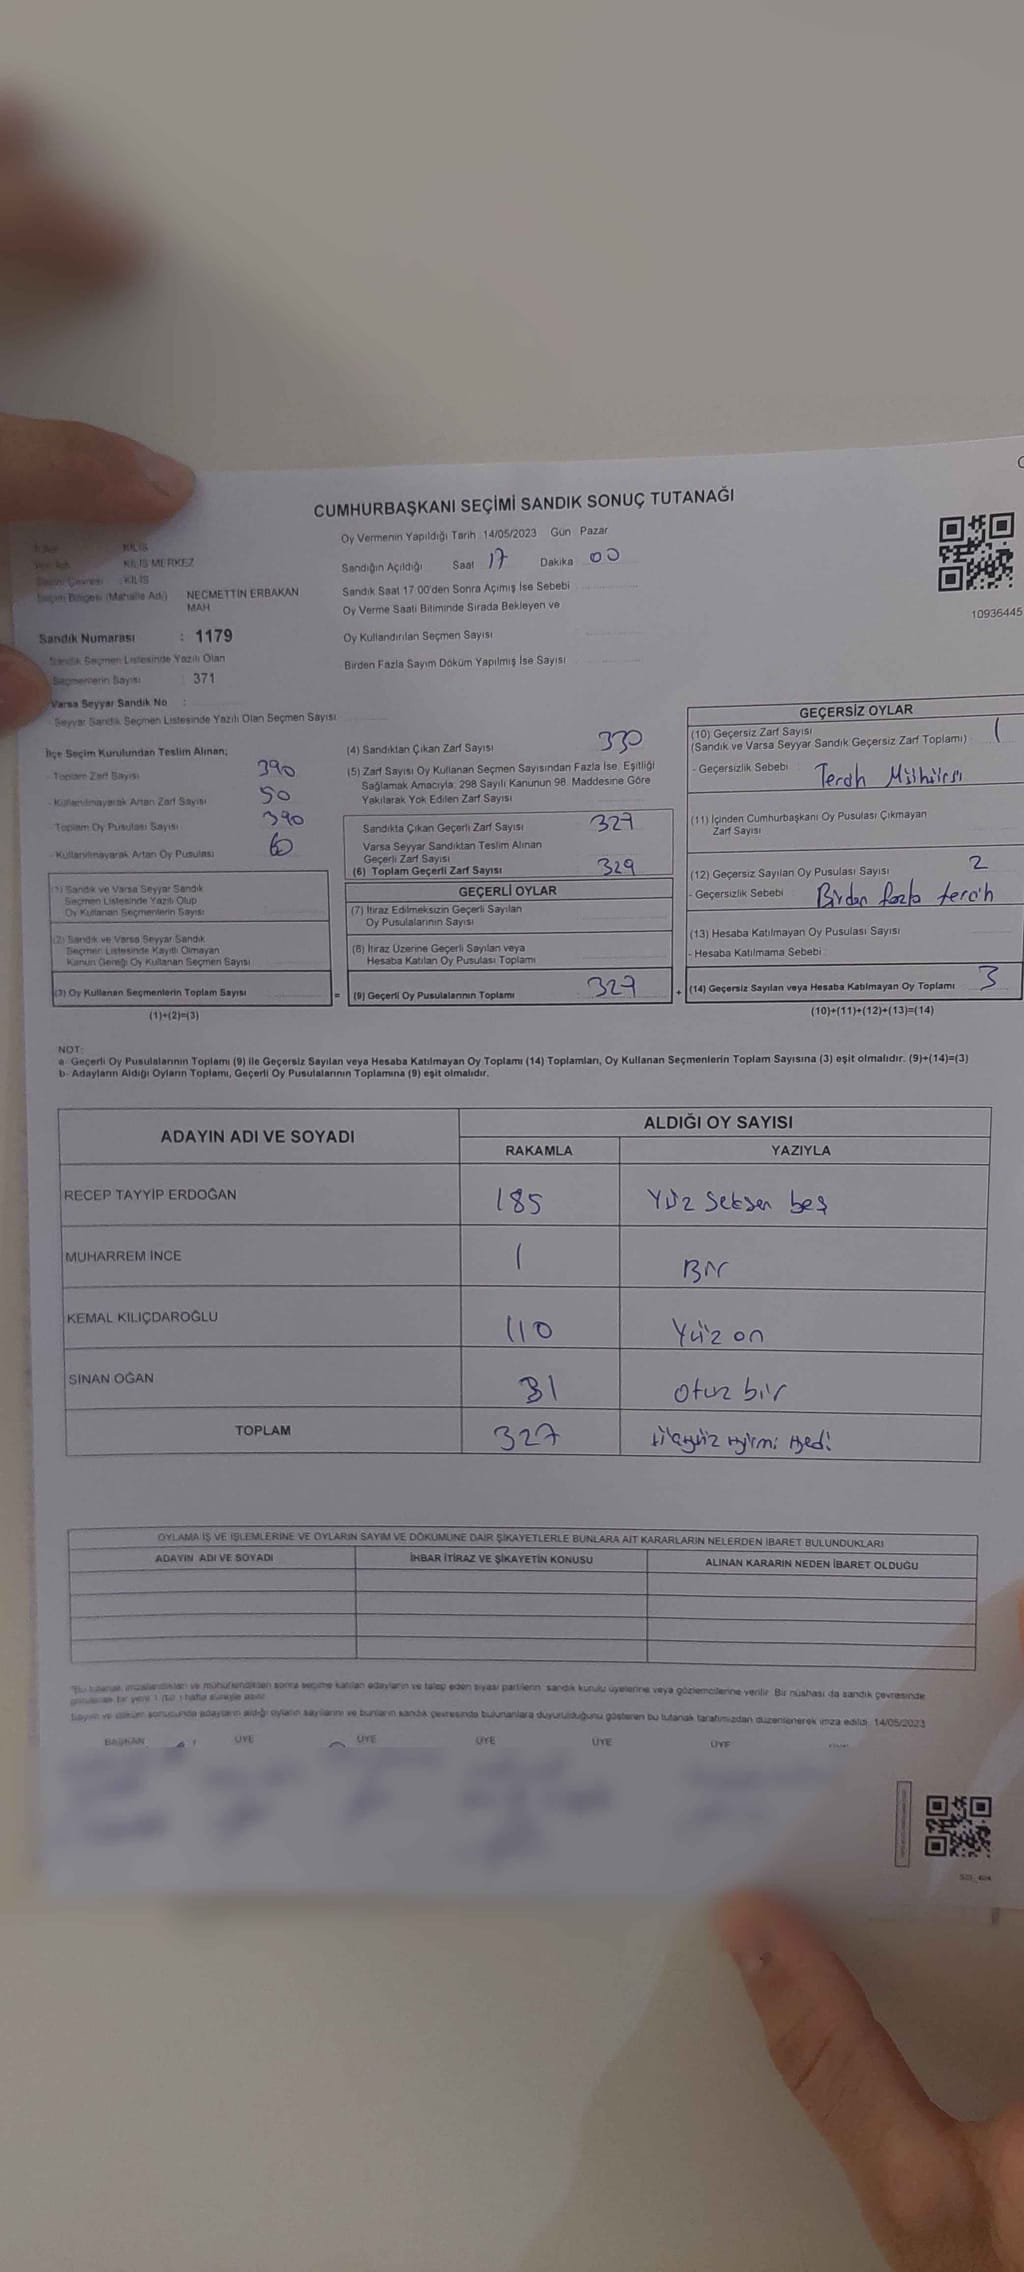 CUMHURBAŞKANI SEÇİMİ SANDIK SONUÇ TUTANAĞI
KİLİS
KİLİS MERKEZ
Seçim Çevresi : KİLİS
Seçim Bölgesi (Mahalle Adı) NECMETTİN ERBAKAN
MAH
Sandık Numarası : 1179
Sandık Seçmen Listesinde Yazılı Olan
Seçmenlerin Sayısı : 371
Varsa Seyyar Sandık No :
- Seyyar Sandık Seçmen Listesinde Yazılı Olan Seçmen Sayısı
Oy Vermenin Yapıldığı Tarih 14/05/2023 Gün Pazar
Sandığın Açıldığı Saat 17 Dakika 00
Sandık Saat 17:00'den Sonra Açımış İse Sebebi
Oy Verme Saati Bitiminde Sırada Bekleyen ve
Oy Kullandırılan Seçmen Sayısı
Birden Fazla Sayım Döküm Yapılmış İse Sayısı
10936445
İlçe Seçim Kurulundan Teslim Alınan;
- Toplam Zarf Sayısı 390
- Kullanılmayarak Artan Zarf Sayısı 50
- Toplam Oy Pusulası Sayısı 390
- Kullanılmayarak Artan Oy Pusulası 60
(1) Sandık ve Varsa Seyyar Sandık
Seçmen Listesinde Yazılı Olup
Oy Kullanan Seçmenlerin Sayısı
(2) Sandık ve Varsa Seyyar Sandık
Seçmen Listesinde Kayıtlı Olmayan
Kanun Gereği Oy Kullanan Seçmen Sayısı
(3) Oy Kullanan Seçmenlerin Toplam Sayısı
(1)+(2)=(3)
(4) Sandıktan Çıkan Zarf Sayısı 330
(5) Zarf Sayısı Oy Kullanan Seçmen Sayısından Fazla İse, Eşitliği
Sağlamak Amacıyla, 298 Sayılı Kanunun 98. Maddesine Göre
Yakılarak Yok Edilen Zarf Sayısı
Sandıkta Çıkan Geçerli Zarf Sayısı 329
Varsa Seyyar Sandıktan Teslim Alınan
Geçerli Zarf Sayısı
(6) Toplam Geçerli Zarf Sayısı 329
GEÇERLİ OYLAR
(7) İtiraz Edilmeksizin Geçerli Sayılan
Oy Pusulasının Sayısı
(8) İtiraz Üzerine Geçerli Sayılan veya
Hesaba Katılan Oy Pusulası Toplamı
= (9) Geçerli Oy Pusulalarının Toplamı 327
GEÇERSİZ OYLAR
(10) Geçersiz Zarf Sayısı 1
(Sandık ve Varsa Seyyar Sandık Geçersiz Zarf Toplamı)
- Geçersizlik Sebebi : Tercih Mühürsı
(11) İçinden Cumhurbaşkanı Oy Pusulası Çıkmayan
Zarf Sayısı
(12) Geçersiz Sayılan Oy Pusulası Sayısı 2
- Geçersizlik Sebebi : Birden fazla tercih
(13) Hesaba Katılmayan Oy Pusulası Sayısı
- Hesaba Katılmama Sebebi :
+ (14) Geçersiz Sayılan veya Hesaba Katılmayan Oy Toplamı 3
(10)+(11)+(12)+(13)=(14)
NOT:
a- Geçerli Oy Pusulalarının Toplamı (9) ile Geçersiz Sayılan veya Hesaba Katılmayan Oy Toplamı (14) Toplamları, Oy Kullanan Seçmenlerin Toplam Sayısına (3) eşit olmalıdır. (9)+(14)=(3)
b- Adayların Aldığı Oyların Toplamı, Geçerli Oy Pusulalarının Toplamına (9) eşit olmalıdır.
ADAYIN ADI VE SOYADI
ALDIĞI OY SAYISI
RAKAMLA YAZIYLA
RECEP TAYYİP ERDOĞAN 185 Yüz seksen beş
MUHARREM İNCE 1 Bir
KEMAL KILIÇDAROĞLU 110 Yüz on
SİNAN OĞAN 31 otuz bir
TOPLAM 327 üçyüz yirmi yedi
OYLAMA İŞ VE İŞLEMLERİNE VE OYLARIN SAYIM VE DÖKÜMÜNE DAİR ŞİKAYETLERLE BUNLARA AİT KARARLARIN NELERDEN İBARET BULUNDUKLARI
ADAYIN ADI VE SOYADI İHBAR İTİRAZ VE ŞİKAYETİN KONUSU ALINAN KARARIN NEDEN İBARET OLDUĞU
*Bu tutanak, imzalandıktan ve mühürlendikten sonra seçime katılan adayların ve talep eden siyasi partilerin sandık kurulu üyelerine veya gözlemcilerine verilir. Bir nüshası da sandık çevresinde
görülecek bir yere 1 (bir) hafta süreyle asılır.
Sayım ve döküm sonucunda adayların aldığı oyların sayılarını ve bunların sandık çevresinde bulunanlara duyurulduğunu gösteren bu tutanak tarafımızdan düzenlenerek imza edildi. 14/05/2023
BAŞKAN ÜYE ÜYE ÜYE ÜYE ÜYE